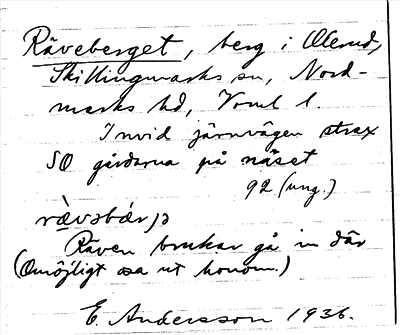 Räveberget, berg i Ulerud,
Skillingmarks sn, Nord-
marks hd, Vrml l.
Invid järnvägen strax
SO gårdarna på näset
92 (ung.)
rävsbärjə
Räven brukar gå in där
(Omöjligt ta ut honom.)
E. Andersson 1936.